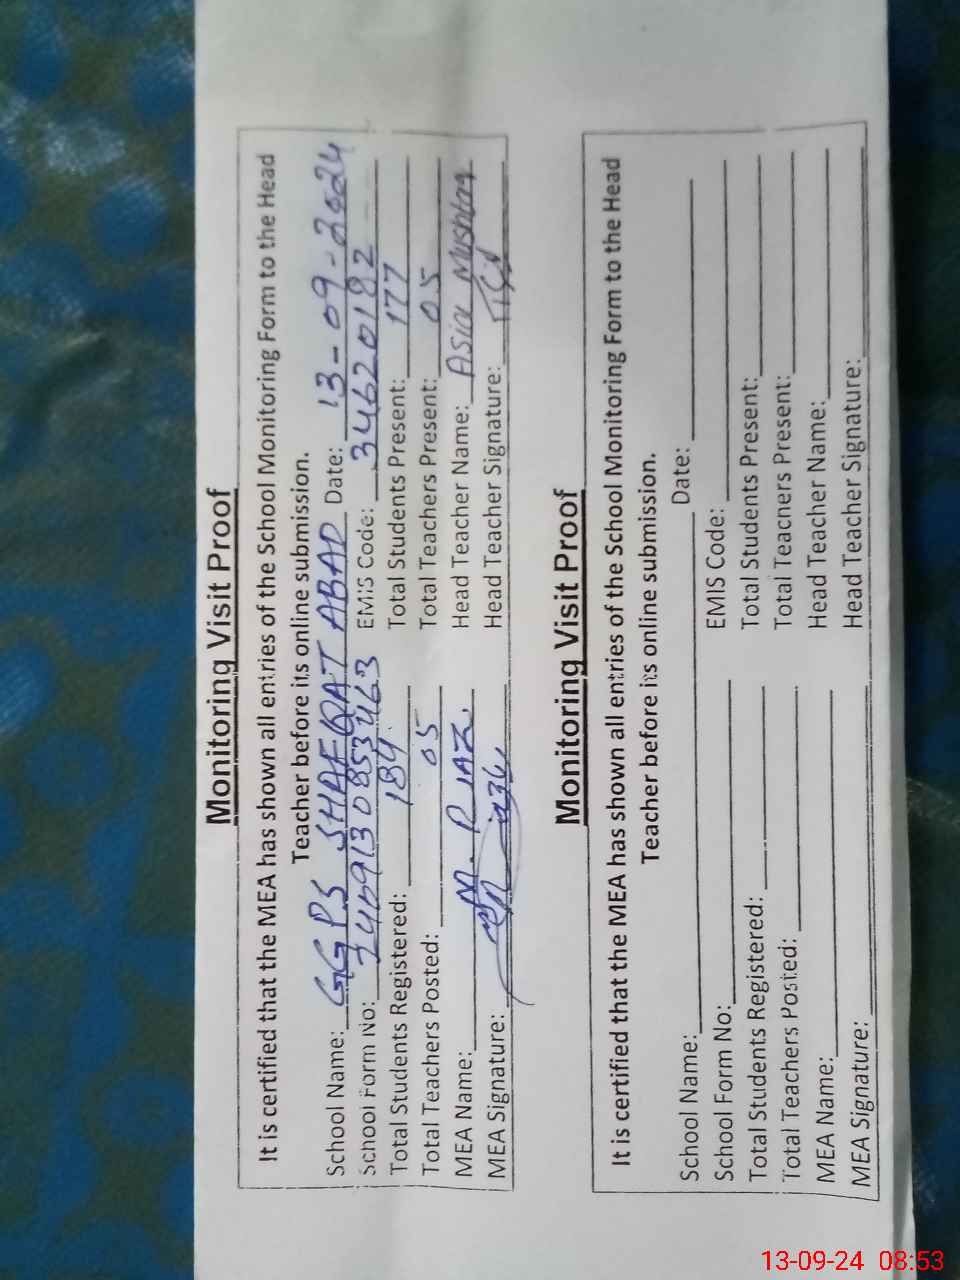 Monitoring Visit Proof
It is certified that the MEA has shown all entries of the School Monitoring Form to the Head
Teacher before its online submission.
School Name: GGPS SHAFQAT ABAD Date: 13-09-2024
School Form No: EMIS Code: 34620182
Total Students Registered: 184 Total Students Present: 177
Total Teachers Posted: 05 Total Teachers Present: 05
MEA Name: M. RIAZ Head Teacher Name: Asia Mushtaq
MEA Signature: Head Teacher Signature:
Monitoring Visit Proof
It is certified that the MEA has shown all entries of the School Monitoring Form to the Head
Teacher before its online submission.
School Name: Date:
School Form No: EMIS Code:
Total Students Registered: Total Students Present:
Total Teachers Posted: Total Teachers Present:
MEA Name: Head Teacher Name:
MEA Signature: Head Teacher Signature:
13-09-24 08:53